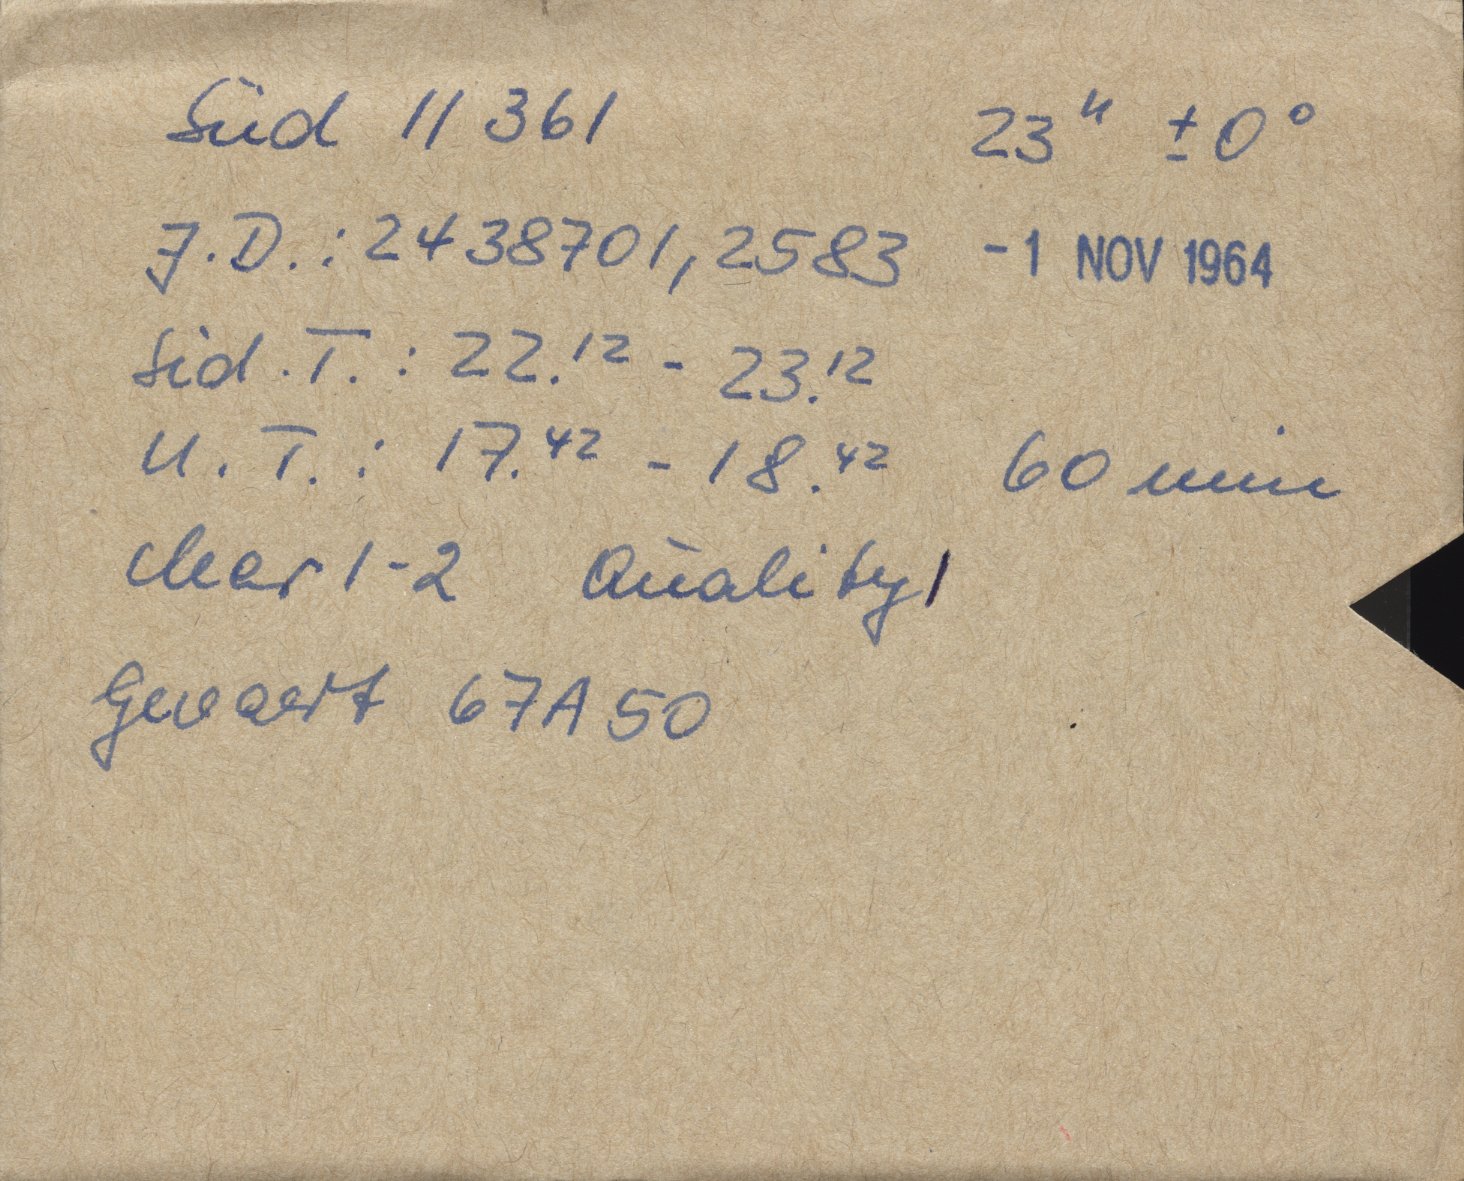 Süd 11361 23ʰ ±0°
J.D.: 2438701,2583 -1 NOV 1964
Sid.T.: 22.¹² - 23.¹²
U.T.: 17.⁴² - 18.⁴² 60 min
clear 1-2 Quality 1
Gevaert 67A50